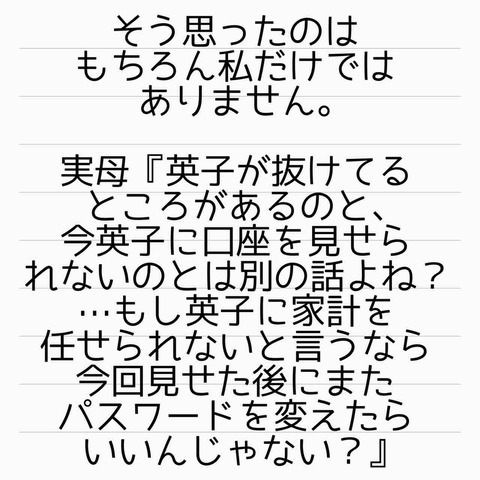 そう思ったのは
もちろん私だけでは
ありません。
実母『英子が抜けてる
ところがあるのと、
今英子に口座を見せら
れないのとは別の話よね？
…もし英子に家計を
任せられないと言うなら
今回見せた後にまた
パスワードを変えたら
いいんじゃない？』